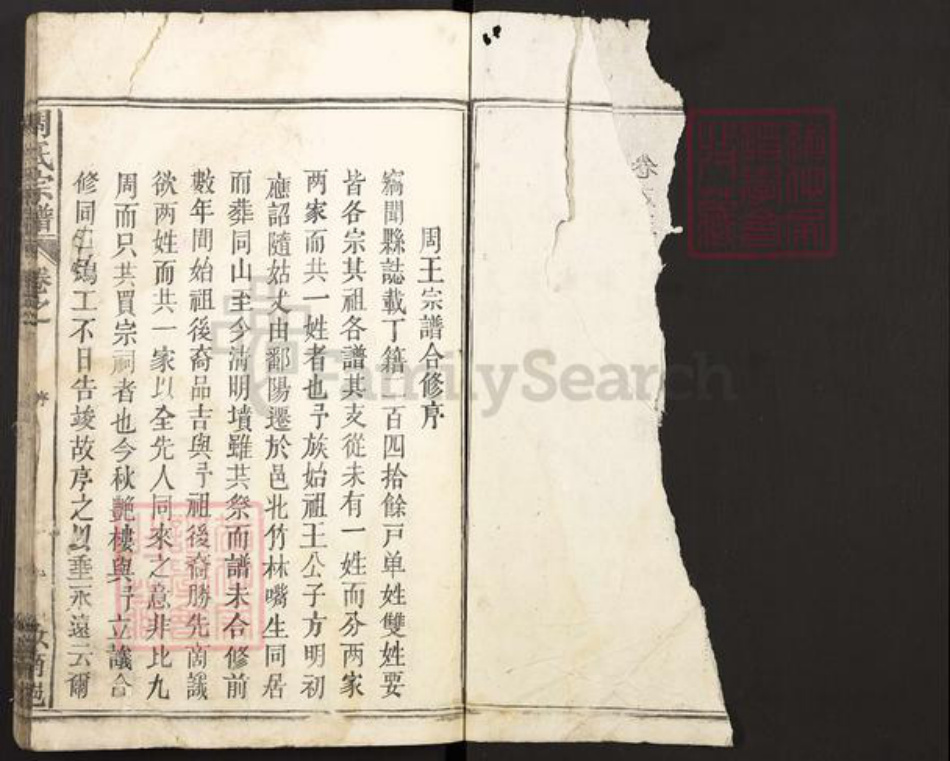 周王宗譜合修序
竊聞縣誌載丁籍二百四拾餘戸单姓雙姓要
皆各宗其祖各譜其支從未有一姓而分两家
两家而共一姓者也予族始祖王公子方明初
應詔隨姑丈由鄱陽遷於邑北竹林嘴生同居
而葬同山至今清明墳雖共祭而譜未合修前
數年間始祖後裔品吉與予祖後裔勝先商議
欲两姓而共一家以全先人同來之意非比九
周而只共買宗祠者也今秋艷樓與予立議合
修同鳩工不日告竣故序之以垂永遠云爾
周氏宗譜
卷之
序
卷
FamilySearch